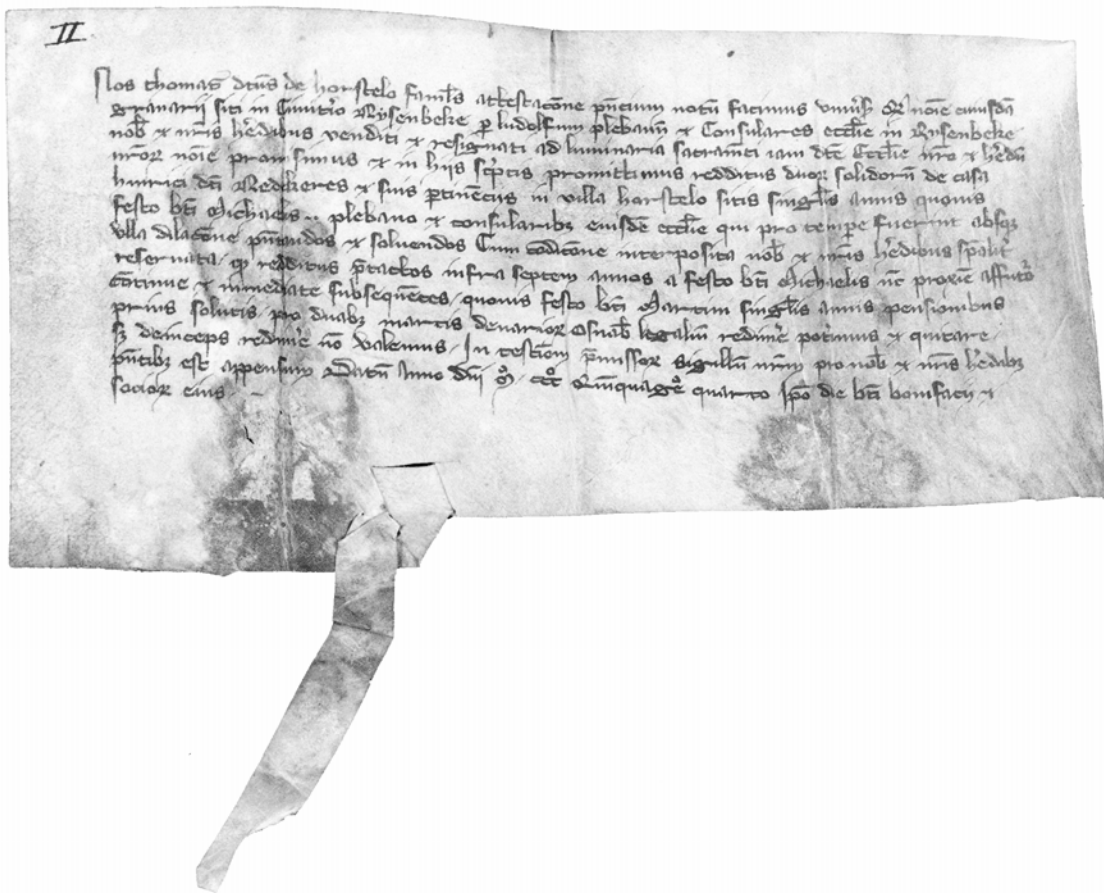 II
Nos thomas dcus de horstelo famls attestacone pncium notu facimus vniuis Qr noie cuiusda
granarij siti in Cimitio Rysenbeke p ludolfum plebanu & Consulares ecclie in Rysenbeke
nob & nris hedibus venditi & resignati ad luminaria sacramti iam dce Ecclie nro & hedu
nror noie promisimus & in hiis sc'ptis promittimus redditus duor solidoru de casa
hinrici dci Redekeres & suis ptinecijs in villa horstelo sitis singlis annis quouis
festo bti Michaelis .. plebano & consularibz eiusde ecclie qui pro tempe fuerint absqz
vlla dilacone pntandos & soluendos Cum codicone interposita nob & nris hedibus spalit
reseruata . q redditus ptactos infra septem annos a festo bti Michaelis nc proxie affuto
cotinue & inmediate subsequetes . quouis festo bti Martini singlis annis pensionibus
prius solutis . pro duabz marcis denarior Osnab legaliu redime potimus & quitare .
sz deinceps redime no valemus . In testiom pmissor sigillu nrm pro nob & nris hedibz
pntibz est appensum Datu Anno dni Mo . ccco Quiquageo quarto Ipo die bti bonifacij &
socior eius . –